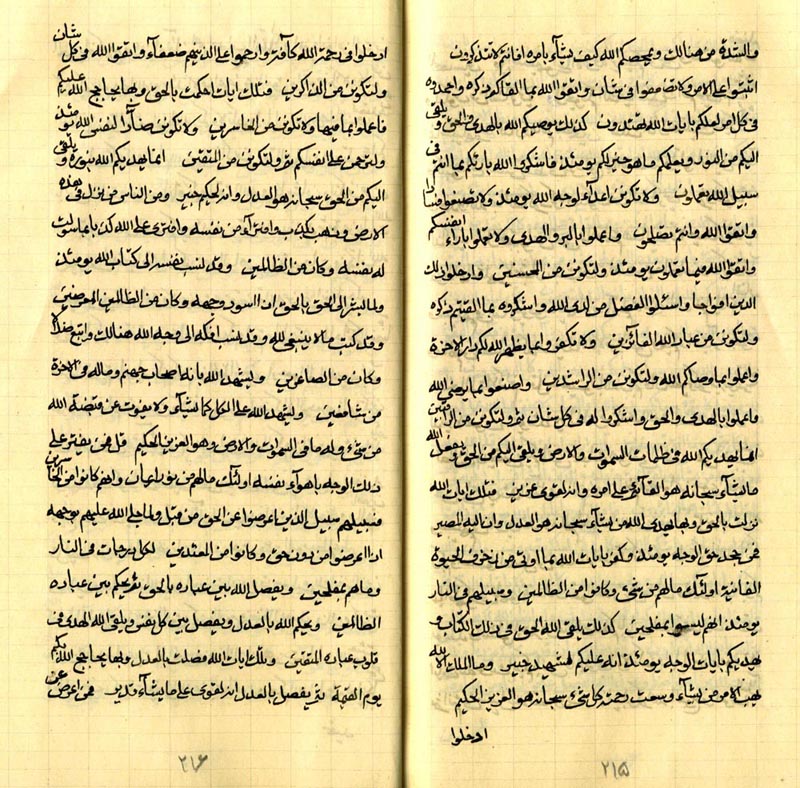 والشدة من هنالك ويمحصكم الله كيف يشآء بامره افانتم لاتتذكرون
اثبتوا على الامر ولا تضعفوا فى شان واتقوا الله بما القاكم ذكره واحمدوه
فى كل امر لعلكم بايات الله تهتدون كذلك يوصيكم الله بالهدى والحق ويلقى
اليكم من النور ويعلمكم ما هو خير لكم يومئذ فاشكروا الله بارئكم بما انتم فى
سبيل الله تعملون ولا تكونن اعدآء لوجه الله يومئذ ولا تصنعوا فسادا
واتقوا الله وانتم تصلحون واعملوا بالبر والهدى ولا تعملوا باراء انفسكم
واتقوا الله فيما تعملون يومئذ ولتكونن من المحسنين وادخلوا ذلك
الدين افواجا واسئلوا الفضل من لدى الله واشكروه بما القيتم ذكره
ولتكونن من عباد الله الفائزين ولا تكفروا بما يظهر الله لكم دار الاخرة
واعملوا بما وصاكم الله ولتكونن من الراشدين واصنعوا بما يرضى الله
واعملوا بالهدى والحق واشكروا له فى كل شان ثم ولتكونن من
انما يهديكم الله فى ظلمات السموات والارض ويلقى اليكم من الحق ويفعل الله
ما يشآء سبحانه هو القآئم على امره وانه لقوى عزيز فتلك ايات الله
نزلت بالحق وبها يهدى الله من يشآء سبحانه هو العدل وان اليه المصير
فمن يجحد حق الوجه يومئذ وكفر بايات الله بما اوتى من زخرف الحيوة
الفانية اولئك مالهم من شئ وكانوا من الظالمين وسبيلهم فى النار
يومئذ انهم ليسوا بمفلحين كذلك يلقى الله الحق فى ذلك الكتاب و
يهديكم بايات الوجه يومئذ انه عليكم لشهيد خبير وما الملك الا لله
يهب الامر من يشآء وسعت رحمته كل شئ سبحانه هو العزيز الحكيم
ادخلوا
٢١٥
ادخلوا فى رحمة الله كآفة وارحموا على الذينهم ضعفآء واتقوا الله فى كل شان
ولتكونن من الذاكرين فتلك ايات احكمت بالحق وبها يحاجج الله عليكم
فاعملوا بما فيها ولا تكونن من الخاسرين ولا تكونن ضآرا لنفس الله يومئذ
ولترحمن على انفسكم ثم ولتكونن من المتقين انما يهديكم الله بنوره ويلقى
اليكم من الحق سبحانه هو العدل وانه لحكيم خبير ومن الناس من نزل فى هذه
الارض وذهب بكذب وافترآء من نفسه وافترى على الله كذبا بما سولت
له نفسه وكان من الظالمين وقد نسب نفسه الى كتاب الله يومئذ
ولما بشر الى الحق بالحق اذا اسود وجهه وكان من الظالمين المعرضين
وقد كتب ما لا ينبغى لله وقد نسب افكه الى وجه الله هنالك واتبع ضلالا
وكان من الصاغرين وليشهد الله بانه اصحاب جهنم وماله فى الاخرة
من شافعين وليشهد الله على الكل كما يشآء ولا يفوت عن قبضة الله
من شئ وله ما فى السموات والارض وهو العزيز الحكيم قل فمن يفتر على
ذلك الوجه باهوآء نفسه اولئك مالهم من نور ايمان وانهم كانوا من الخاسرين
فسبيلهم سبيل الذين اعرضوا عن الحق من قبل ولما جلى الله عليهم بوجهه
اذا اعرضوا من دون حق وكانوا من المعتدين لكل درجات فى النار
وماهم بمفلحين ويفصل الله بين عباده بالحق ثم يحكم بين عباده
الظالمين ويحكم الله بالعدل ويفصل بين كل نفس ويلقى الله الهدى فى
قلوب عباده المتقين وتلك ايات الله فصلت بالعدل وبها يحاجج الله بكم
يوم القيمة ثم يفصل بالعدل انه لقوى على ما يشآء قدير فمن اعرض عن
٢١٦